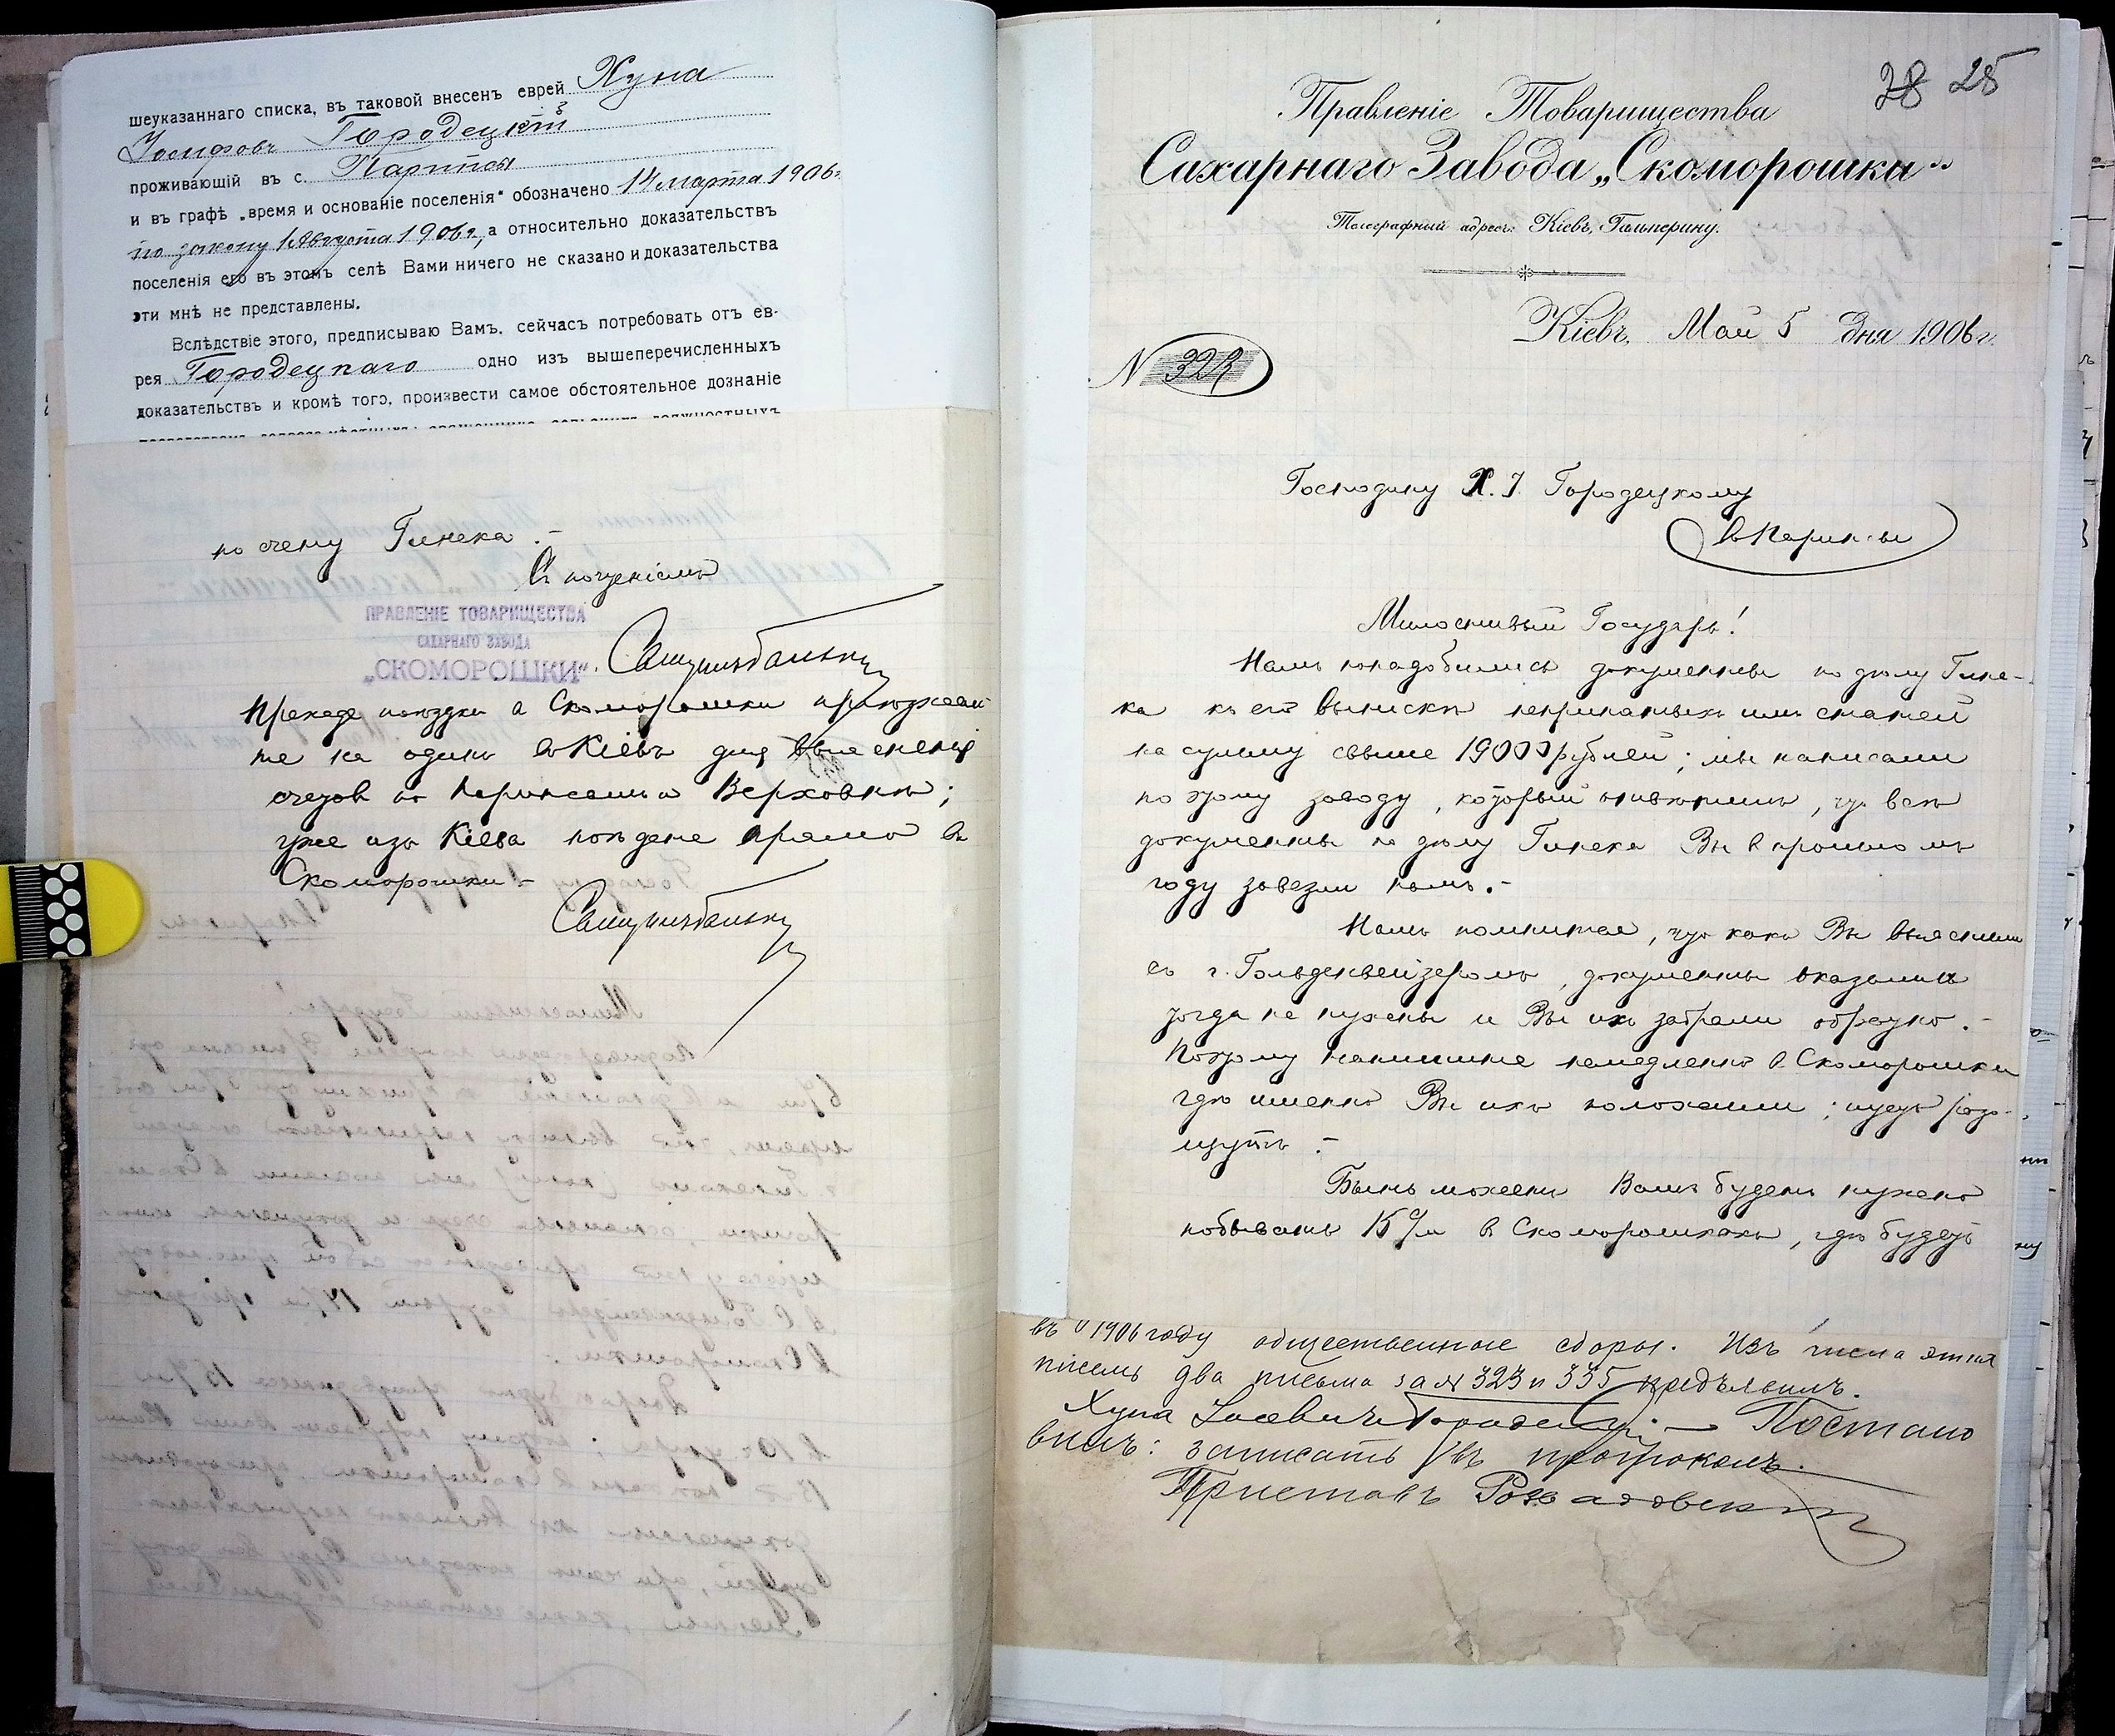 шеуказаннаго списка, въ таковой внесенъ еврей Хуна
Іосифовъ Городецкій
проживающій въ с. Паринсы
и въ графѣ „время и основаніе поселенія" обозначено 14 марта 1906г.
по закону 1 Августа 1906г., а относительно доказательствъ
поселенія его въ этомъ селѣ Вами ничего не сказано и доказательства
эти мнѣ не представлены.
Вслѣдствіе этого, предписываю Вамъ, сейчасъ потребовать отъ ев-
рея Городецкаго одно изъ вышеперечисленныхъ
доказательствъ и кромѣ того, произвести самое обстоятельное дознаніе
по счету Гинека.-
Съ почтеніемъ
ПРАВЛЕНІЕ ТОВАРИЩЕСТВА
САХАРНАГО ЗАВОДА
„СКОМОРОШКИ".
Прежде поѣздки въ Скоморошки пріѣзжай-
те на одинъ въ Кіевъ для выясненія
счетов по Паринсамъ и Верховкѣ;
уже изъ Кіева поѣдете прямо въ
Скоморошки.-
28 25
Правленіе Товарищества
Сахарнаго Завода „Скоморошки"
Телеграфный адресъ: Кіевъ, Гальперину.
Кіевъ, Май 5 дня 1906 г.
N 323
Господину Х. І. Городецкому
въ Паринсы
Милостивый Государь!
Намъ понадобились документы по дѣлу Гине-
ка къ его выпискѣ непринятыхъ имъ статей
на сумму свыше 19000 рублей; мы написали
поэтому заводу, который отвѣтилъ, что всѣ
документы по дѣлу Гинека Вы в прошломъ
году завезли намъ.-
Намъ помнится, что какъ Вы выяснили
съ г. Гольденвейзеромъ, документы оказались
тогда не нужны и Вы ихъ забрали обратно.-
Поэтому напишите немедленно в Скоморошки
гдѣ именно Вы ихъ положили; пусть разы-
щутъ.-
Быть можетъ Вамъ будетъ нужно
побывать 15 с/м в Скоморошкахъ, гдѣ будетъ
въ 1906 году общественные сборы. Изъ числа этихъ
писемъ два письма за № 323 и 335 предъявилъ.
Хуна Іосевичъ Городецкій. — Постано
вилъ: записать въ протоколъ.
Приставъ